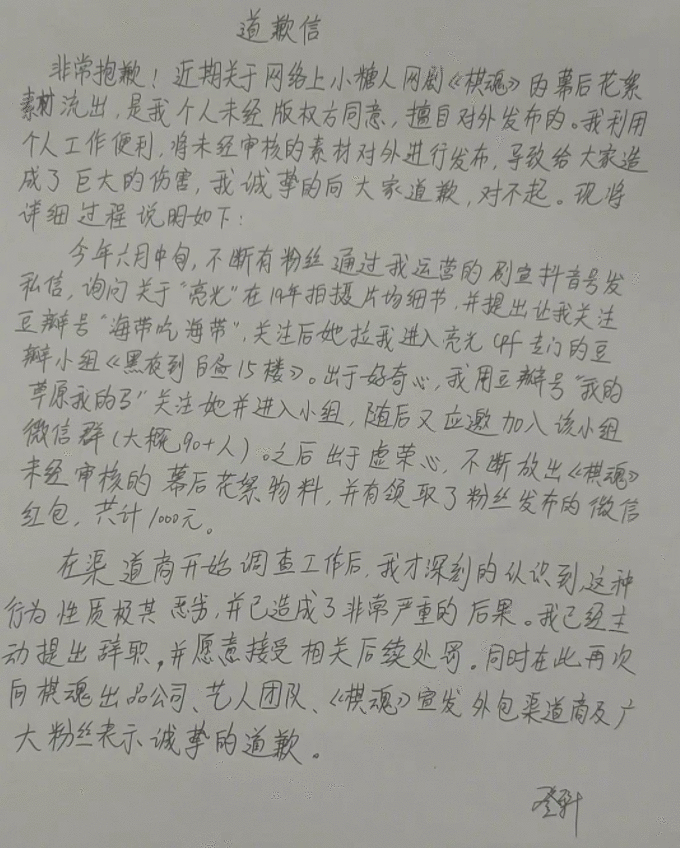 道歉信
非常抱歉！近期关于网络上小糖人网剧《棋魂》的幕后花絮
素材流出，是我个人未经版权方同意，擅自对外发布的。我利用
个人工作便利，将未经审核的素材对外进行发布，导致给大家造
成了巨大的伤害，我诚挚的向大家道歉，对不起。现将
详细过程说明如下：
今年六月中旬，不断有粉丝通过我运营的剧宣抖音号发
私信，询问关于“亮光”在19年拍摄片场细节，并提出让我关注
豆瓣号“海带吃海带”，关注后她拉我进入亮光cpf专门的豆
瓣小组《黑夜到白昼15楼》。出于好奇心，我用豆瓣号“我的
草原我的马”关注她并进入小组，随后又应邀加入该小组
微信群（大概90+人）。之后出于虚荣心，不断放出《棋魂》
未经审核的幕后花絮物料，并有领取了粉丝发布的微信
红包，共计1000元。
在渠道商开始调查工作后，我才深刻的认识到，这种
行为性质极其恶劣，并已造成了非常严重的后果。我已经主
动提出辞职，并愿意接受相关后续处罚。同时在此再次
向棋魂出品公司、艺人团队、《棋魂》宣发外包渠道商及广
大粉丝表示诚挚的道歉。